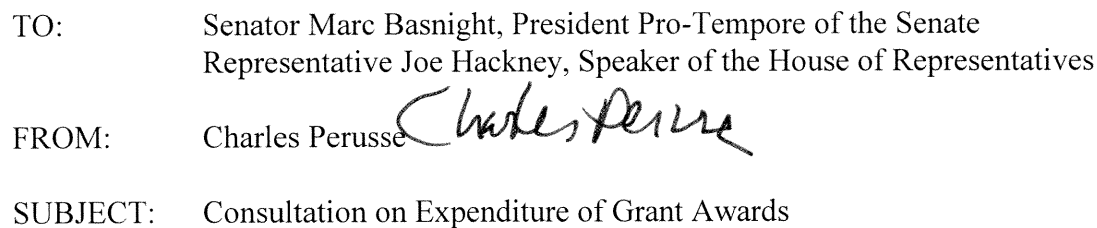 TO: Senator Marc Basnight, President Pro-Tempore of the Senate
Representative Joe Hackney, Speaker of the House of Representatives
FROM: Charles Perusse Charles Perusse
SUBJECT: Consultation on Expenditure of Grant Awards